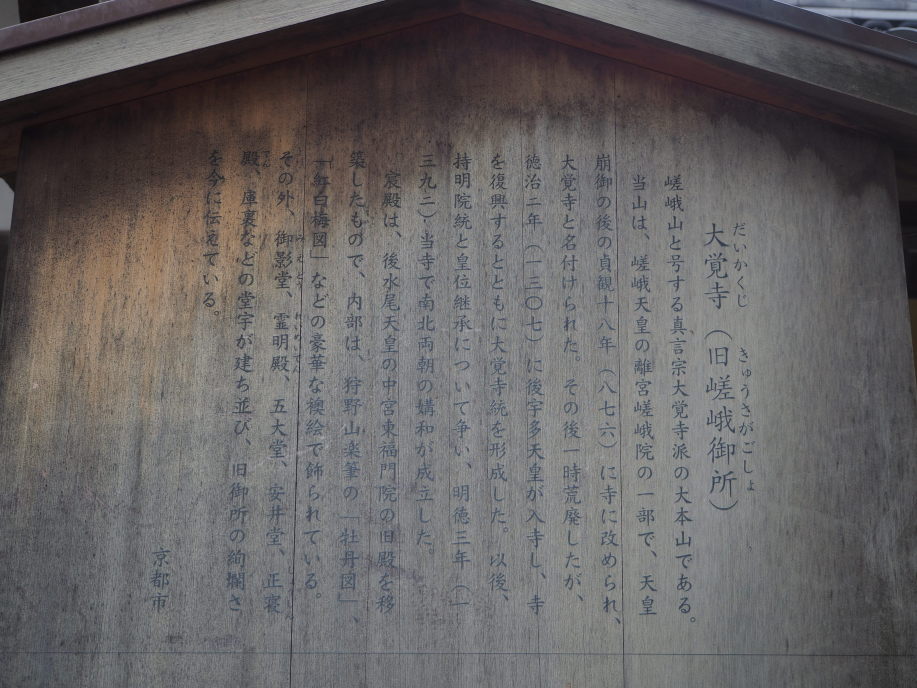 大覚寺（旧嵯峨御所）
だいかくじ　きゅうさがごしょ
嵯峨山と号する真言宗大覚寺派の大本山である。
当山は、嵯峨天皇の離宮嵯峨院の一部で、天皇
崩御の後の貞観十八年（八七六）に寺に改められ、
大覚寺と名付けられた。その後一時荒廃したが、
徳治二年（一三〇七）に後宇多天皇が入寺し、寺
を復興するとともに大覚寺統を形成した。以後、
持明院統と皇位継承について争い、明徳三年（一
三九二）当寺で南北両朝の媾和が成立した。
宸殿は、後水尾天皇の中宮東福門院の旧殿を移
築したもので、内部は、狩野山楽筆の「牡丹図」、
「紅白梅図」などの豪華な襖絵で飾られている。
その外、御影堂、霊明殿、五大堂、安井堂、正寝
殿、庫裏などの堂宇が建ち並び、旧御所の絢爛さ
を今に伝えている。
京都市